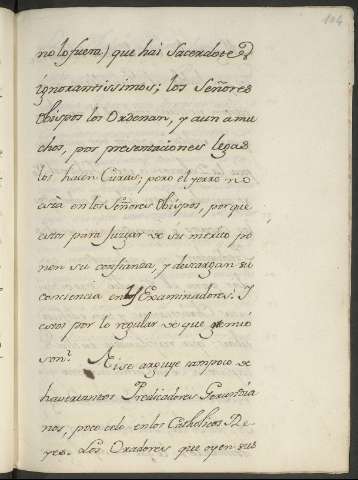 104
no lo fuera) que hai Sacerdotes
ignorantissimos; los Señores
Obispos los Ordenan, y aun a mu
chos, por presentaciones legas
los hacen Curas; pero el yerro no
està en los Señores Obispos, porque
estos para Juzgar de su merito po
nen su confianza, y descargan su
conciencia en Examinadores: Y
estos por lo regular de que gremio
son?  Ni se arguye tampoco de
haver tantos Predicadores Gerundia
nos, poco celo en los Catholicos Re
yes. Los Oradores que oyen sus